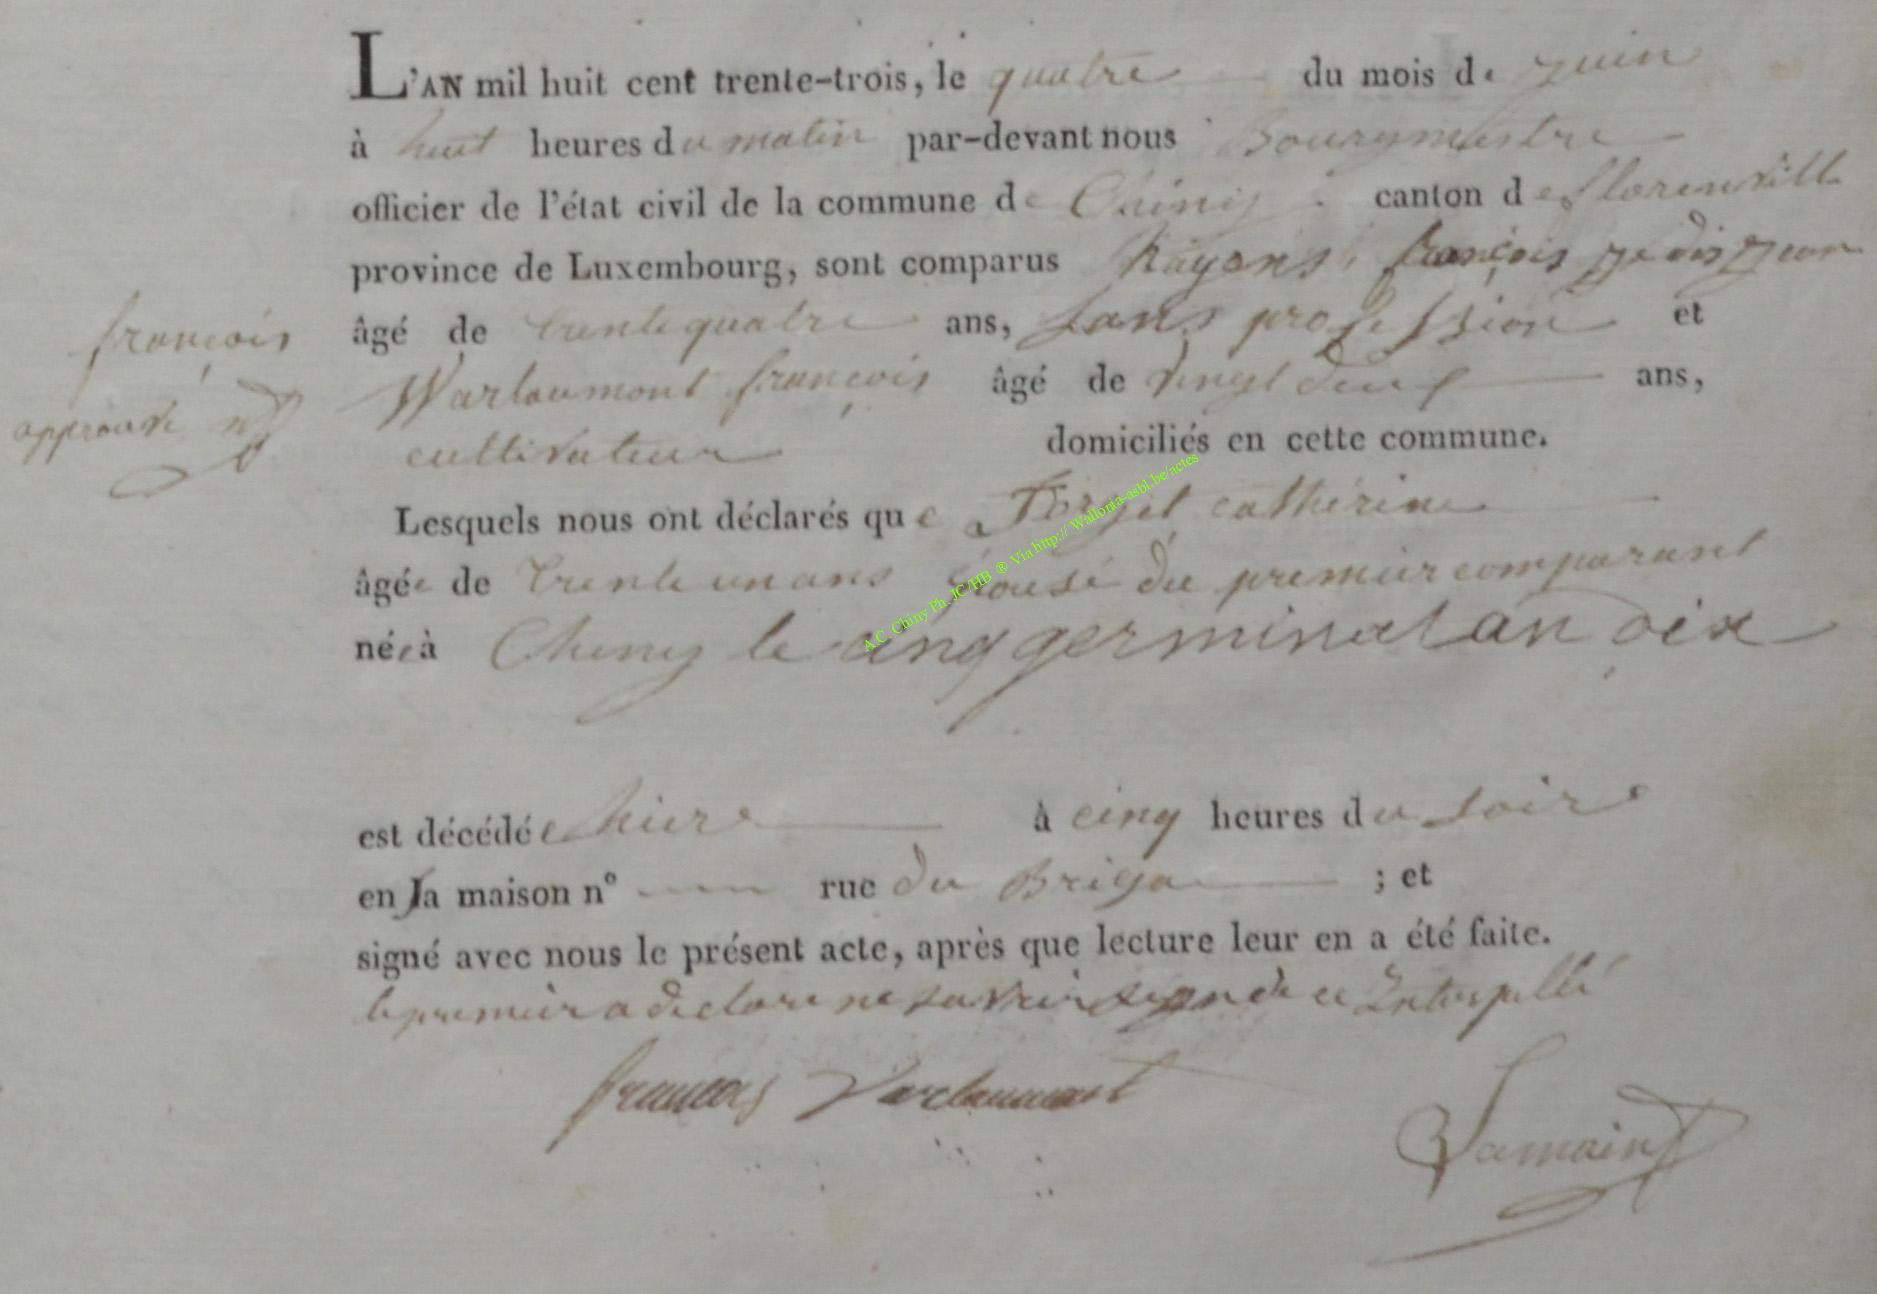 L'AN mil huit cent trente-trois, le quatre du mois de juin
à huit heures du matin par-devant nous Bourgmestre
officier de l'état civil de la commune de Chiny canton de florenville
province de Luxembourg, sont comparus françois je dis jean
françois
âgé de trente quatre ans, sans profession et
Warloumont françois âgé de vingt deux ans,
approuvé
cultivateur domiciliés en cette commune.
Lesquels nous ont déclarés que Forget catherine
âgée de trente un ans épouse du premier comparant
née à Chiny le cinq germinal an dix
A.C. Chiny Ph. JC/HB ® Via http:// Wallonia-asbl.be/actes
est décédée hiere à cinq heures du soire
en sa maison n° rue du Briga ; et
signé avec nous le présent acte, après que lecture leur en a été faite.
le premier a declare ne savoir signer de ce Interpellé
francois Warloumont
Lamain